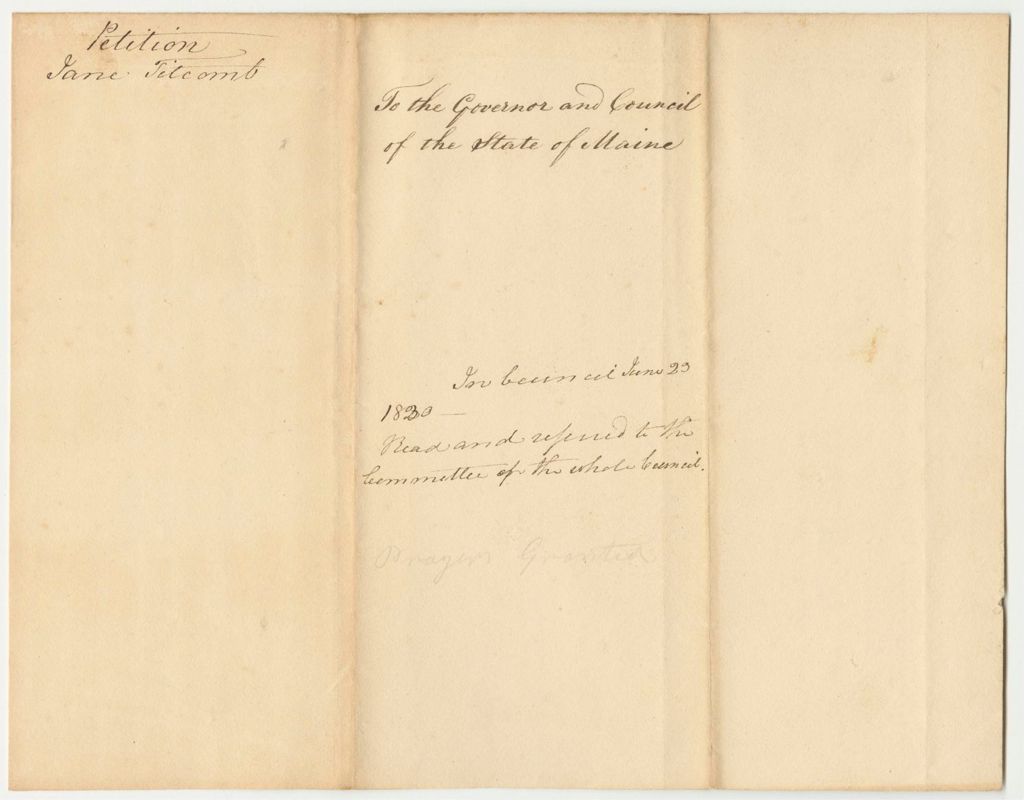 Petition
Jane Titcomb
To the Governor and Council
of the State of Maine
In Council June 23
1830 —
Read and referred to the
Committee of the whole Council.
Prayer Granted